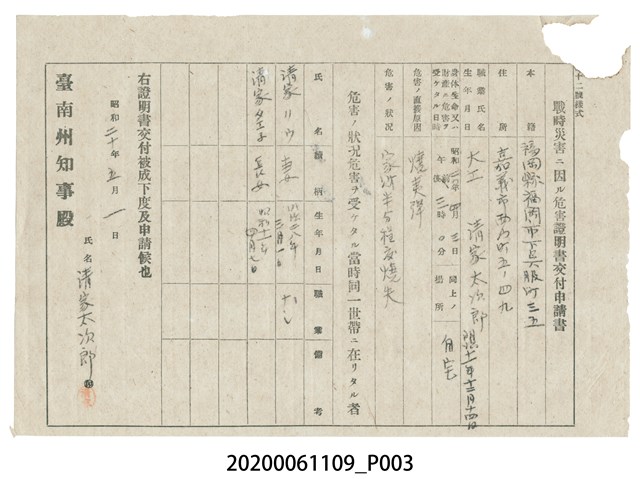 十二號樣式
戰時災害ニ因ル危害證明書交付申請書
本籍 福岡縣福岡市下 町三五
住所 嘉義市 町五ノ四九
職業氏名 生年月日 大工 清家太次郎 明 十二月十四日
身体生命又ハ財產ニ危害ヲ受ケタル日時 昭和 年四月三日 午後 二時〇分 同上ノ場所 自宅
危害ノ直接原因 燒夷彈
危害ノ狀況 家 半分程度燒失
危害ノ狀況危害ヲ受ケタル當時同一世帶ニ在リタル者
氏名 續柄 生年月日 職業 備考
清家リウ 妻 明治 八年三月一日 ナシ
清家 子 長女 昭和十一年四月九日
右證明書交付被成下度及申請候也
昭和二十年五月一日
氏名 清家太次郎
臺南州知事殿
20200061109_P003